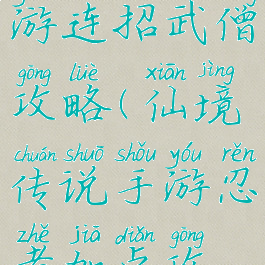 游连招武僧
gōng lüè xiān jìng
攻略(仙境
chuán shuō shǒu yóu rěn
传说手游忍
zhě jiā diǎn gōng
者加点攻